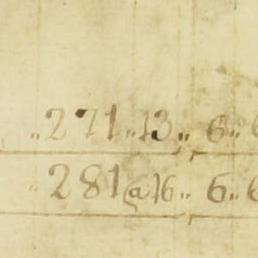 „271„13„ 6„ 6
„281@16„ 6„ 6